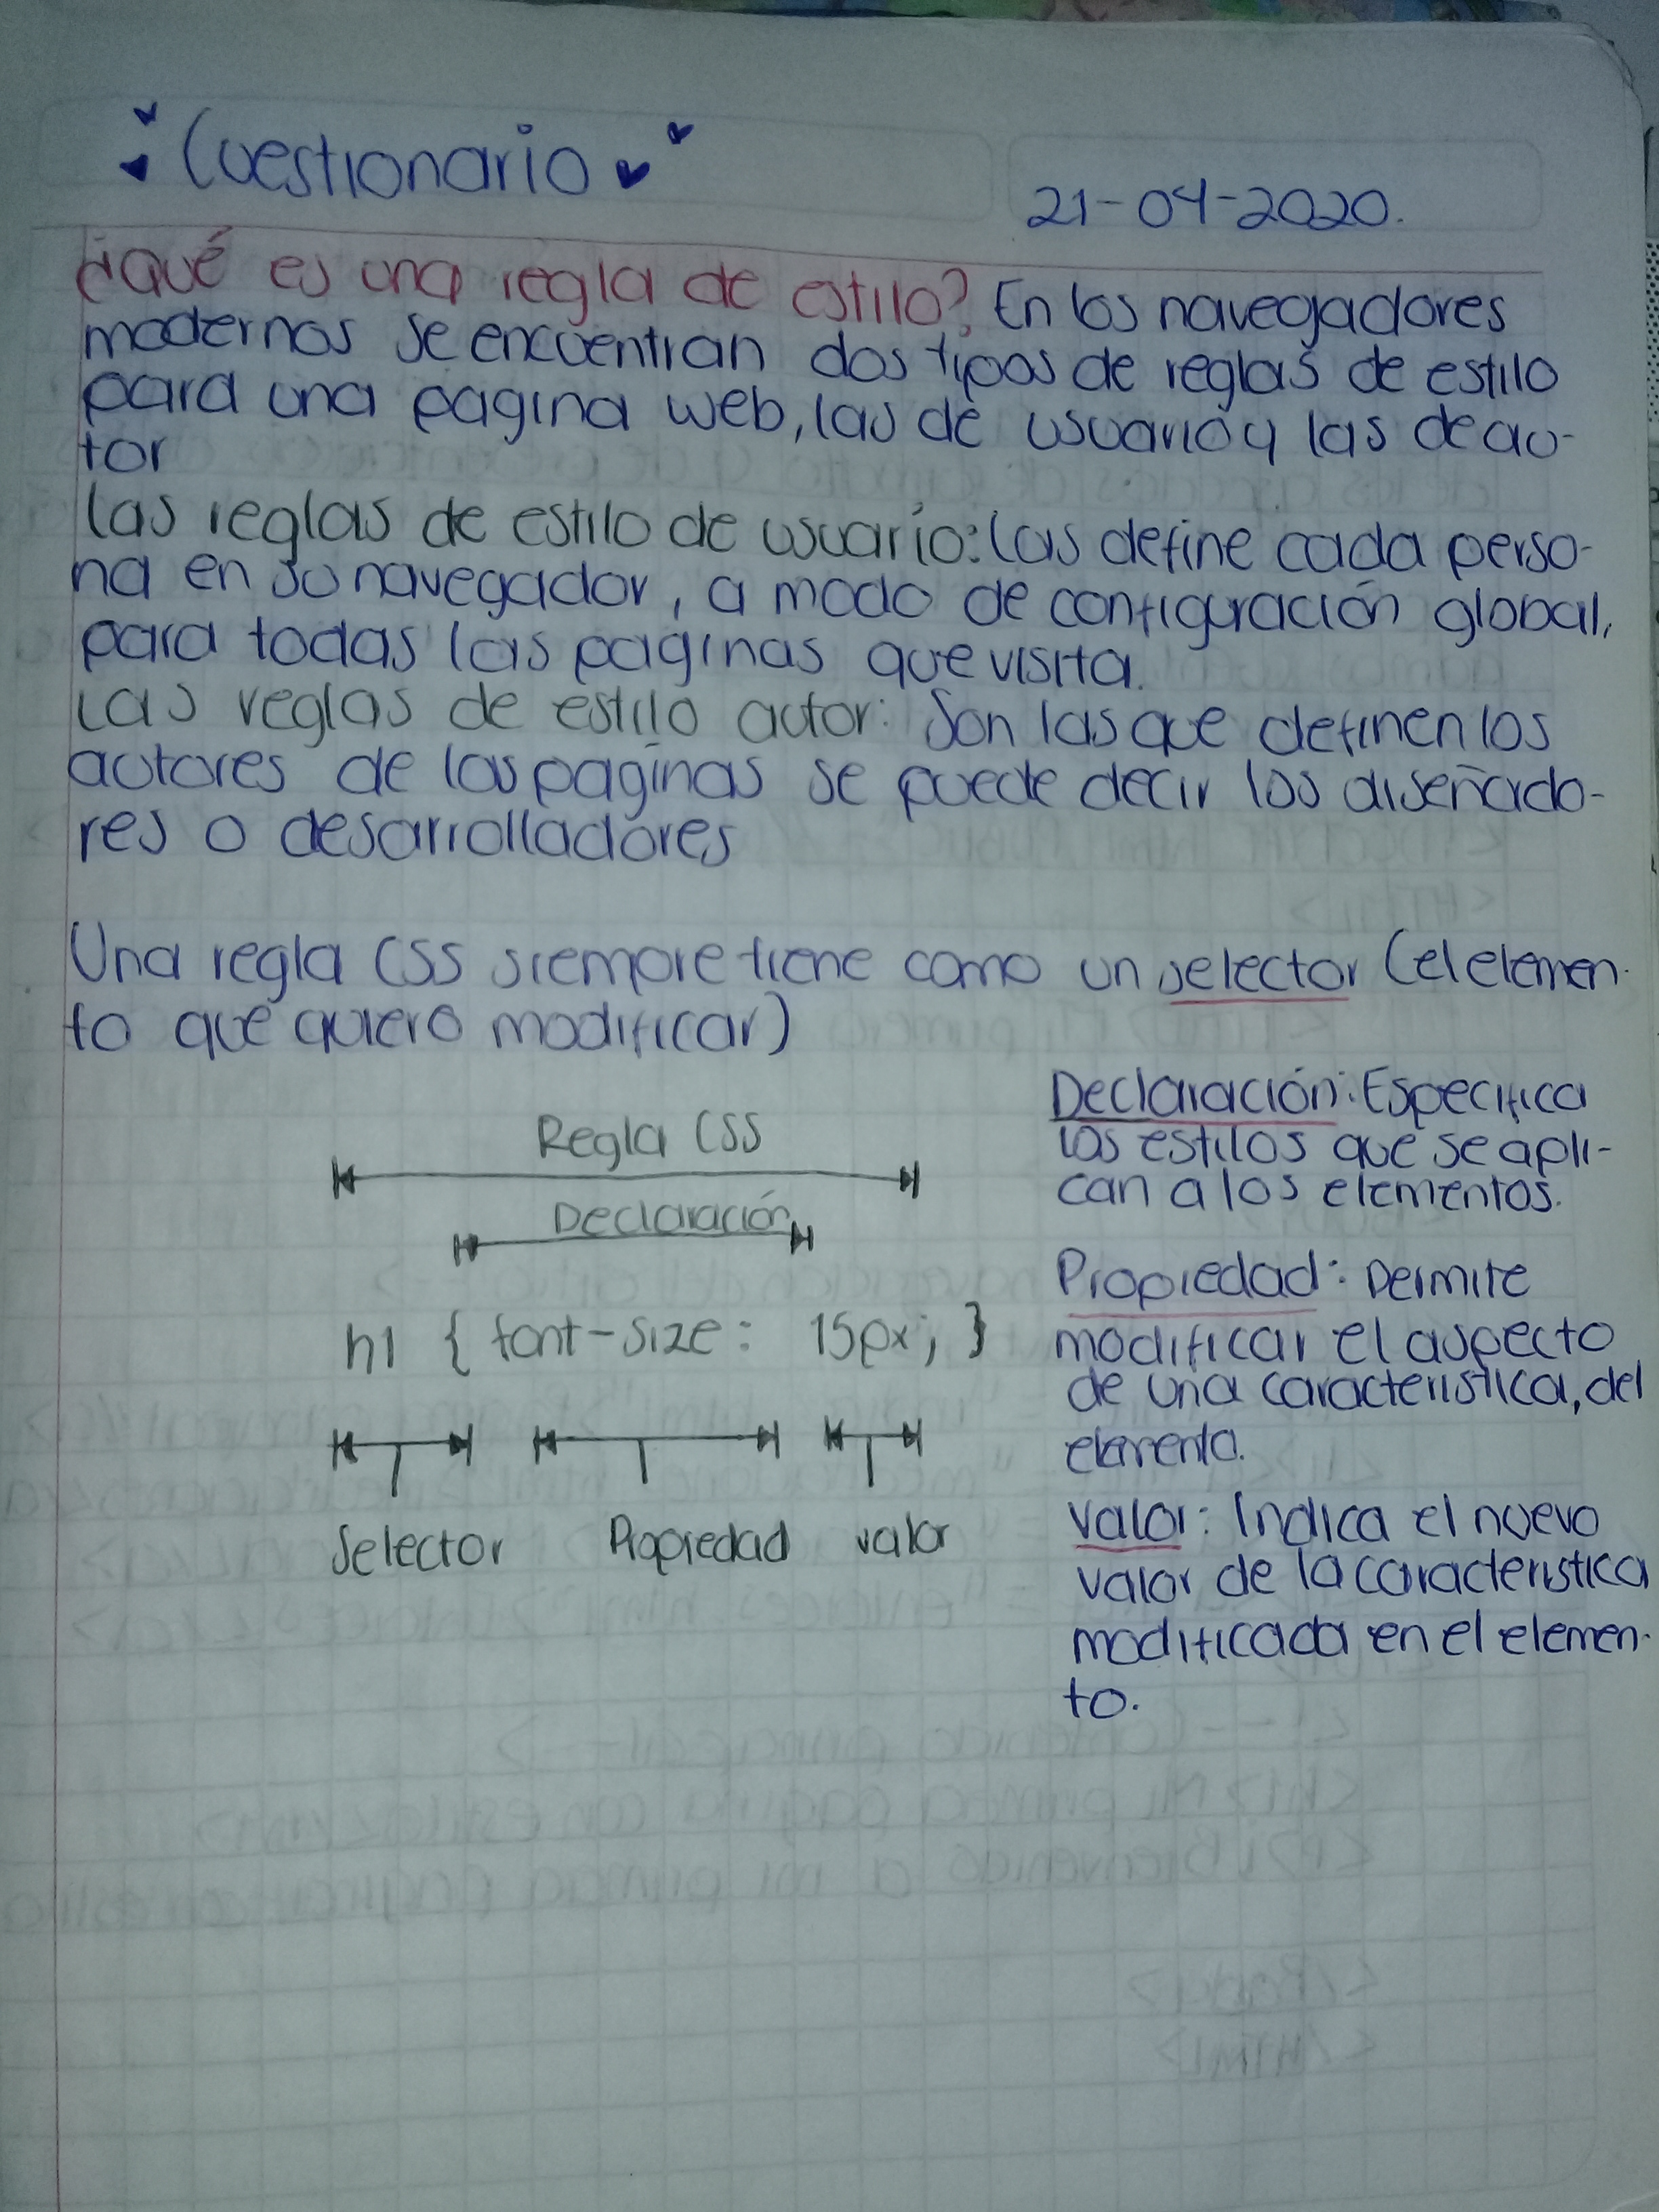 Cuestionario
21-04-2020.
¿Qué es una regla de estilo? En los navegadores
modernos se encuentran dos tipos de reglas de estilo
para una pagina web, las de usuario y las de au-
tor
Las reglas de estilo de usuario: las define cada perso-
na en su navegador, a modo de configuración global,
para todas las paginas que visita.
Las reglas de estilo autor: Son las que definen los
autores de las paginas se puede decir los diseñado-
res o desarrolladores
Una regla CSS siempre tiene como un selector (el elemen-
to que quiero modificar)
Regla CSS
Declaración
h1 { font-size: 15px; }
Selector Propiedad valor
Declaración: Especifica
los estilos que se apli-
can a los elementos.
Propiedad: Permite
modificar el aspecto
de una caracteristica, del
elemento.
Valor: Indica el nuevo
valor de la caracteristica
modificada en el elemen-
to.